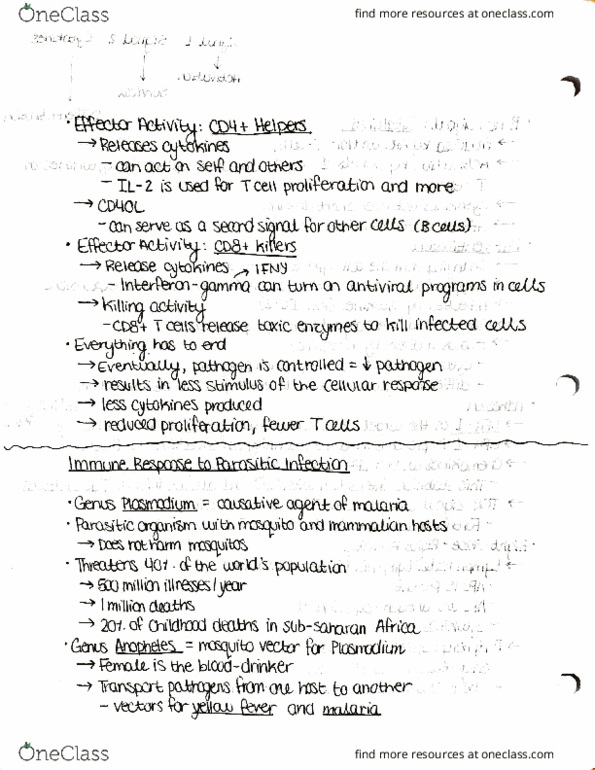 OneClass
find more resources at oneclass.com
• Effector Activity: CD4+ Helpers
→ Releases cytokines
- can act on self and others
- IL-2 is used for T cell proliferation and more
→ CD40L
- can serve as a second signal for other cells (B cells)
• Effector Activity: CD8+ Killers
→ Release cytokines → IFNγ
- Interferon-gamma can turn on antiviral programs in cells
→ Killing activity
- CD8+ T cells release toxic enzymes to kill infected cells
• Everything has to end
→ Eventually, pathogen is controlled = ↓ pathogen
→ results in less stimulus of the cellular response
→ less cytokines produced
→ reduced proliferation, fewer T cells
Immune Response to Parasitic Infection
• Genus Plasmodium = causative agent of malaria
• Parasitic organism with mosquito and mammalian hosts
→ Does not harm mosquitos
• Threatens 40% of the world's population
→ 500 million illnesses/year
→ 1 million deaths
→ 20% of childhood deaths in sub-saharan Africa
• Genus Anopheles = mosquito vector for Plasmodium
→ Female is the blood-drinker
→ Transport pathogens from one host to another
- vectors for yellow fever and malaria
OneClass
find more resources at oneclass.com